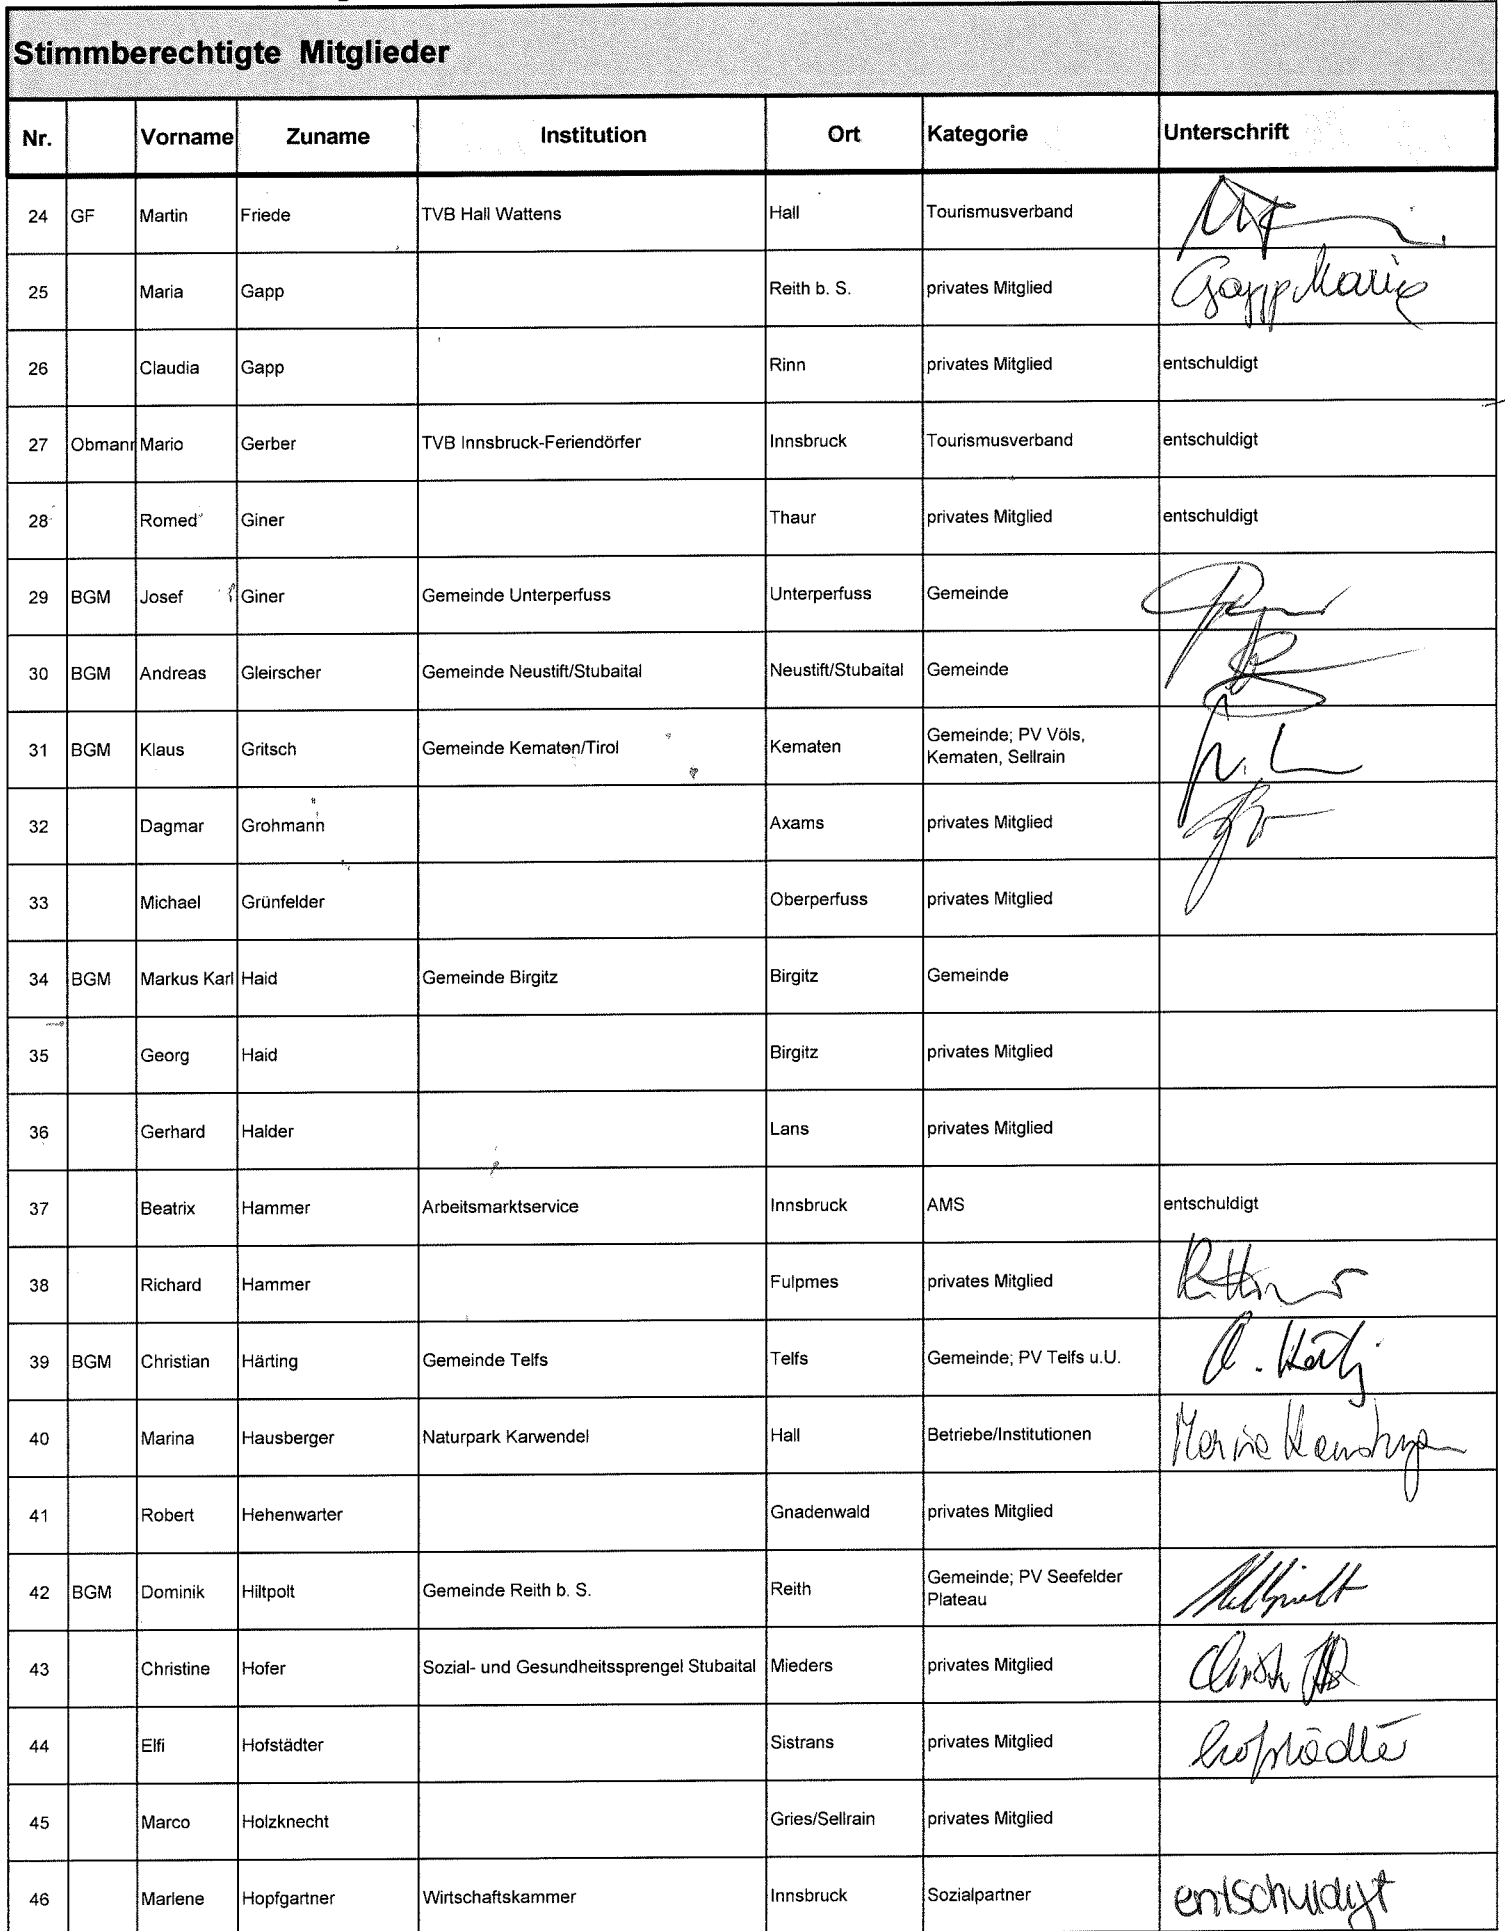 Stimmberechtigte Mitglieder
Nr. Vorname Zuname Institution Ort Kategorie Unterschrift
24 GF Martin Friede TVB Hall Wattens Hall Tourismusverband
25 Maria Gapp Reith b. S. privates Mitglied Gapp Maria
26 Claudia Gapp Rinn privates Mitglied entschuldigt
27 Obmann Mario Gerber TVB Innsbruck-Feriendörfer Innsbruck Tourismusverband entschuldigt
28 Romed Giner Thaur privates Mitglied entschuldigt
29 BGM Josef Giner Gemeinde Unterperfuss Unterperfuss Gemeinde
30 BGM Andreas Gleirscher Gemeinde Neustift/Stubaital Neustift/Stubaital Gemeinde
31 BGM Klaus Gritsch Gemeinde Kematen/Tirol Kematen Gemeinde; PV Völs,
Kematen, Sellrain
32 Dagmar Grohmann Axams privates Mitglied
33 Michael Grünfelder Oberperfuss privates Mitglied
34 BGM Markus Karl Haid Gemeinde Birgitz Birgitz Gemeinde
35 Georg Haid Birgitz privates Mitglied
36 Gerhard Halder Lans privates Mitglied
37 Beatrix Hammer Arbeitsmarktservice Innsbruck AMS entschuldigt
38 Richard Hammer Fulpmes privates Mitglied
39 BGM Christian Härting Gemeinde Telfs Telfs Gemeinde; PV Telfs u.U.
40 Marina Hausberger Naturpark Karwendel Hall Betriebe/Institutionen Marina Hausberger
41 Robert Hehenwarter Gnadenwald privates Mitglied
42 BGM Dominik Hiltpolt Gemeinde Reith b. S. Reith Gemeinde; PV Seefelder
Plateau Hiltpolt
43 Christine Hofer Sozial- und Gesundheitssprengel Stubaital Mieders privates Mitglied
44 Elfi Hofstädter Sistrans privates Mitglied Hofstädter
45 Marco Holzknecht Gries/Sellrain privates Mitglied
46 Marlene Hopfgartner Wirtschaftskammer Innsbruck Sozialpartner entschuldigt